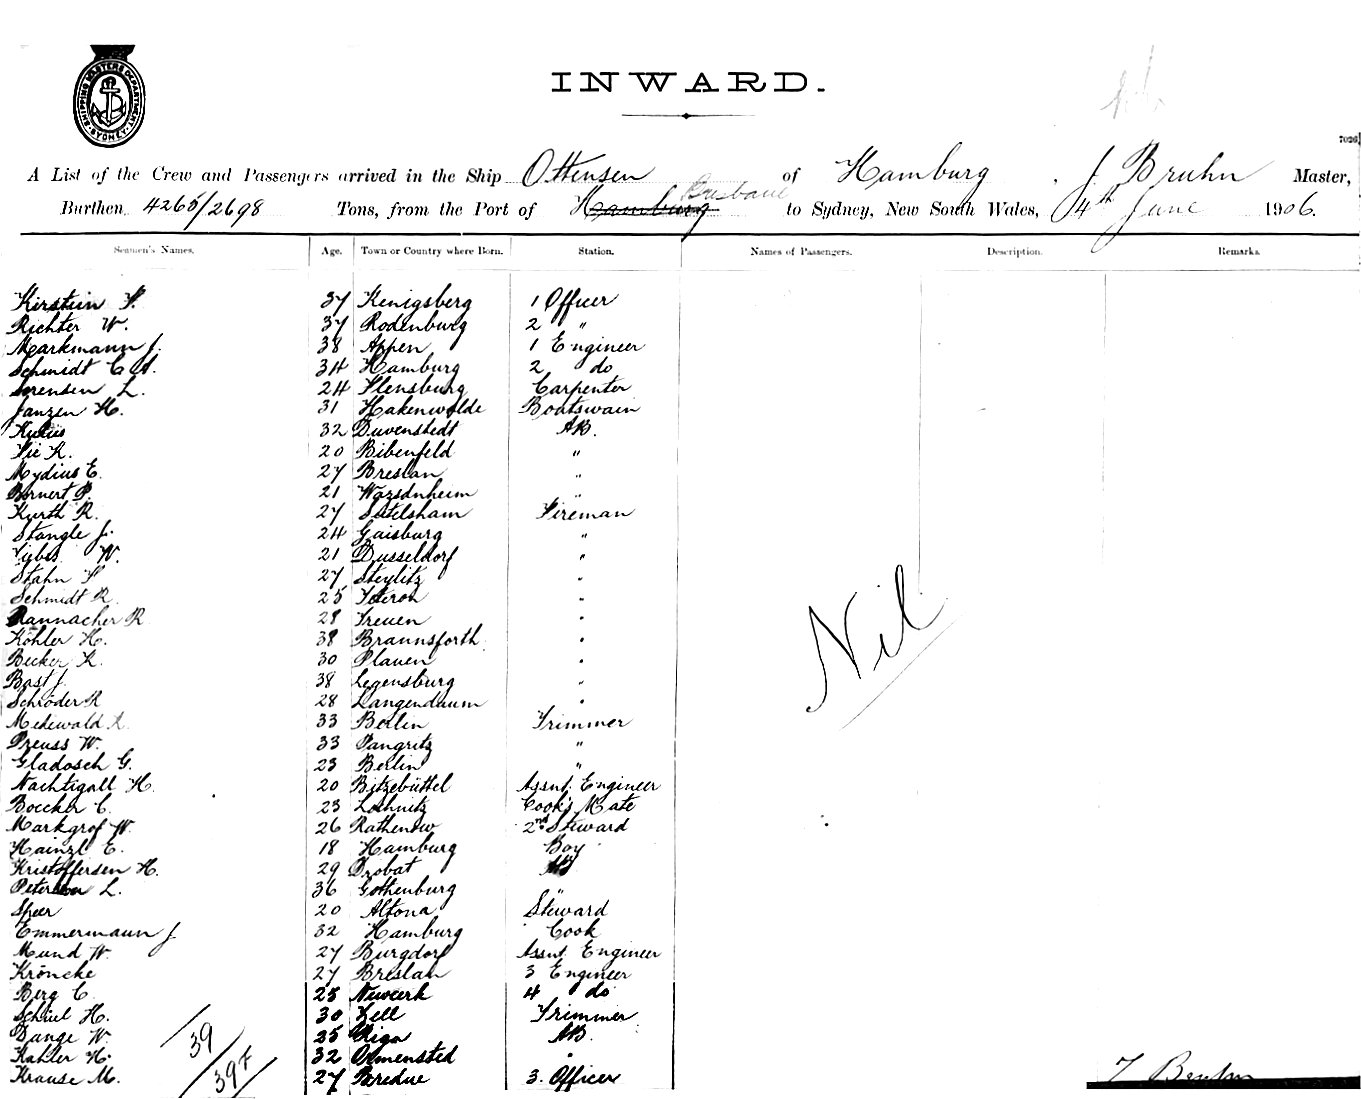 SHIPPING MASTERS DEPARTMENT. SYDNEY
INWARD.
7026
A List of the Crew and Passengers arrived in the Ship Ottensen of Hamburg, J Bruhn Master,
Burthen 4265/2698 Tons, from the Port of Hamburg Brisbane to Sydney, New South Wales, 4th June 1906.
Seamen's Names. Age. Town or Country where Born. Station. Names of Passengers. Description. Remarks.
Kirstein F. 37 Kenigsberg 1 Officer
Richter W. 37 Rodenburg 2 "
Markmann J. 38 Appen 1 Engineer
Schmidt C A. 34 Hamburg 2 do
Sorensen L. 24 Flensburg Carpenter
Janzen H. 31 Hakenwolde Boatswain
32 Duvenstedt AB.
20 Bibenfeld "
Mydius E. 27 Breslau "
21 "
Kurth R. 27 Fireman
Stangle J. 24 Gaisburg "
W. 21 Dusseldorf "
Stahn F 27 Steylitz "
Schmidt R. 25 "
Rannacher R 28 Treuen "
Köhler H. 38 Braunsforth "
Becker R. 30 Plauen "
Bast J. 38 Legensburg "
Schröder R 28 Langendaum "
Medewald R. 33 Berlin Trimmer
Preuss W. 33 Pangritz "
Gladosch G. 23 Berlin "
Nachtigall H. 20 Bitzebüttel Assnt. Engineer
Boecker C. 23 Loshnitz Cook's Mate
Markgrof W. 26 Rathenow 2nd Steward
Hainzl E. 18 Hamburg Boy
Kristoffersen H. 29 Drobat AB
Petersen L. 36 Gothenburg "
Speer 20 Altona Steward
Emmermann J 32 Hamburg Cook
Mund W. 27 Burgdorf Assnt. Engineer
Kröncke 27 Breslau 3 Engineer
Berg C. 25 4 do
Schiel H. 30 Zell Trimmer
Dange W. 25 Riga AB.
Kahler H. 32 Ormensted "
Krause M. 27 Bredue 3. Officer
39
39+
Nil
J Bruhn